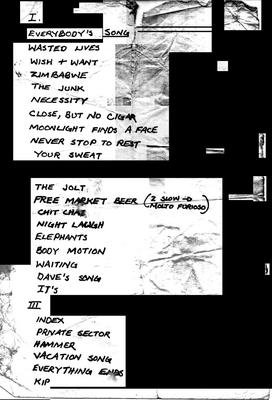 I.
EVERYBODY'S SONG
WASTED LIVES
WISH + WANT
ZIMBABWE
THE JUNK
NECESSITY
CLOSE, BUT NO CIGAR
MOONLIGHT FINDS A FACE
NEVER STOP TO REST
YOUR SWEAT
THE JOLT
FREE MARKET BEER (2 SLOW
MOLTO FURIOSO)
CHIT CHAT
NIGHT LAUGH
ELEPHANTS
BODY MOTION
WAITING
DAVE'S SONG
IT'S
III
INDEX
PRIVATE SECTOR
HAMMER
VACATION SONG
EVERYTHING ENDS
KIP